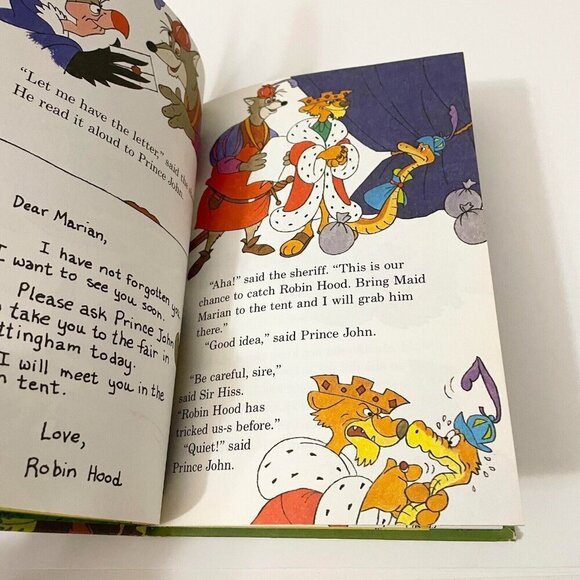 "Let me have the letter," said the
He read it aloud to Prince John.
Dear Marian,
I have not forgotten you
I want to see you soon.
Please ask Prince John
take you to the fair in
ttingham today.
I will meet you in the
tent.
Love,
Robin Hood
"Aha!" said the sheriff. "This is our
chance to catch Robin Hood. Bring Maid
Marian to the tent and I will grab him
there."
"Good idea," said Prince John.
"Be careful, sire,"
said Sir Hiss.
"Robin Hood has
tricked us-s before."
"Quiet!" said
Prince John.